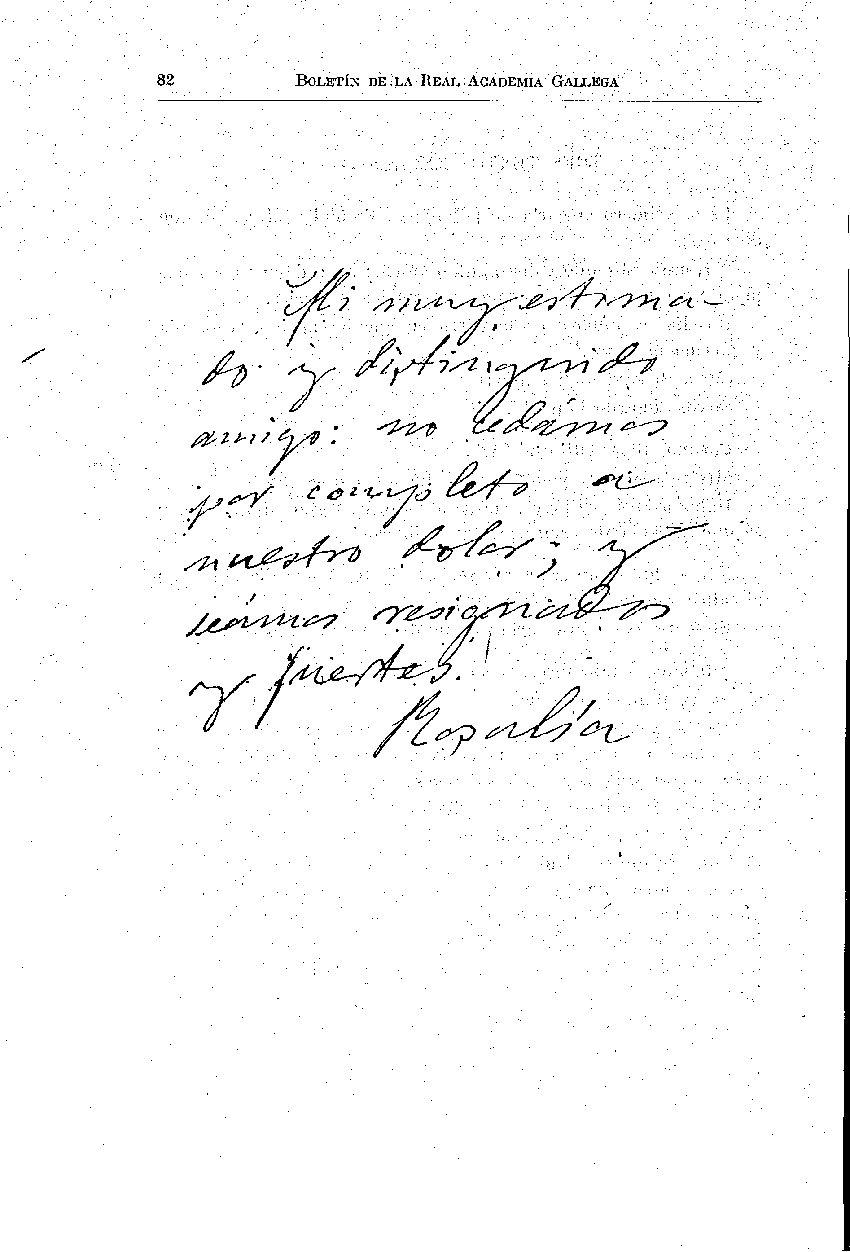 82 BOLETÍN DE LA REAL ACADEMIA GALLEGA
Mi muy estima-
do y distinguido
amigo: no cedámos
por completo a
nuestro dolor; y
seámos resignados
y fuertes.
Rosalía